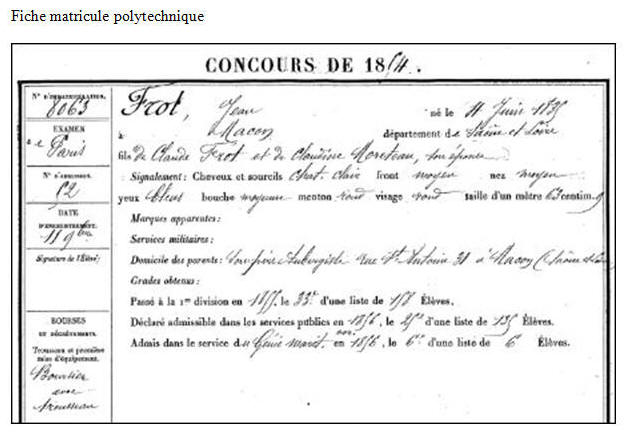 Fiche matricule polytechnique
CONCOURS DE 1854.
N° D'IMMATRICULATION.
8063
EXAMEN
de
Paris
N° D'ADMISSION.
52
DATE
D'ENREGISTREMENT.
11 9bre
Signature de l'Élève:
BOURSES
ET DÉGRÈVEMENTS.
Trousseau et première
mise d'équipement.
Boursier
avec
trousseau
Frot, Jean né le 4 Juin 1835
à Macon département de Saône et Loire
fils de Claude Frot et de Claudine Moreteau, son épouse
Signalement: Cheveux et sourcils chat. clair front moyen nez moyen
yeux bleus bouche moyenne menton rond visage rond taille d'un mètre 63 centim.
Marques apparentes:
Services militaires:
Domicile des parents: Son père Aubergiste rue St Antoine 31 à Macon (Saône et Loire
Grades obtenus:
Passé à la 1re division en 1855, le 33e d'une liste de 158 Élèves.
Déclaré admissible dans les services publics en 1856, le d'une liste de 135 Élèves.
Admis dans le service du Génie marit. en 1856, le 6e d'une liste de 6 Élèves.